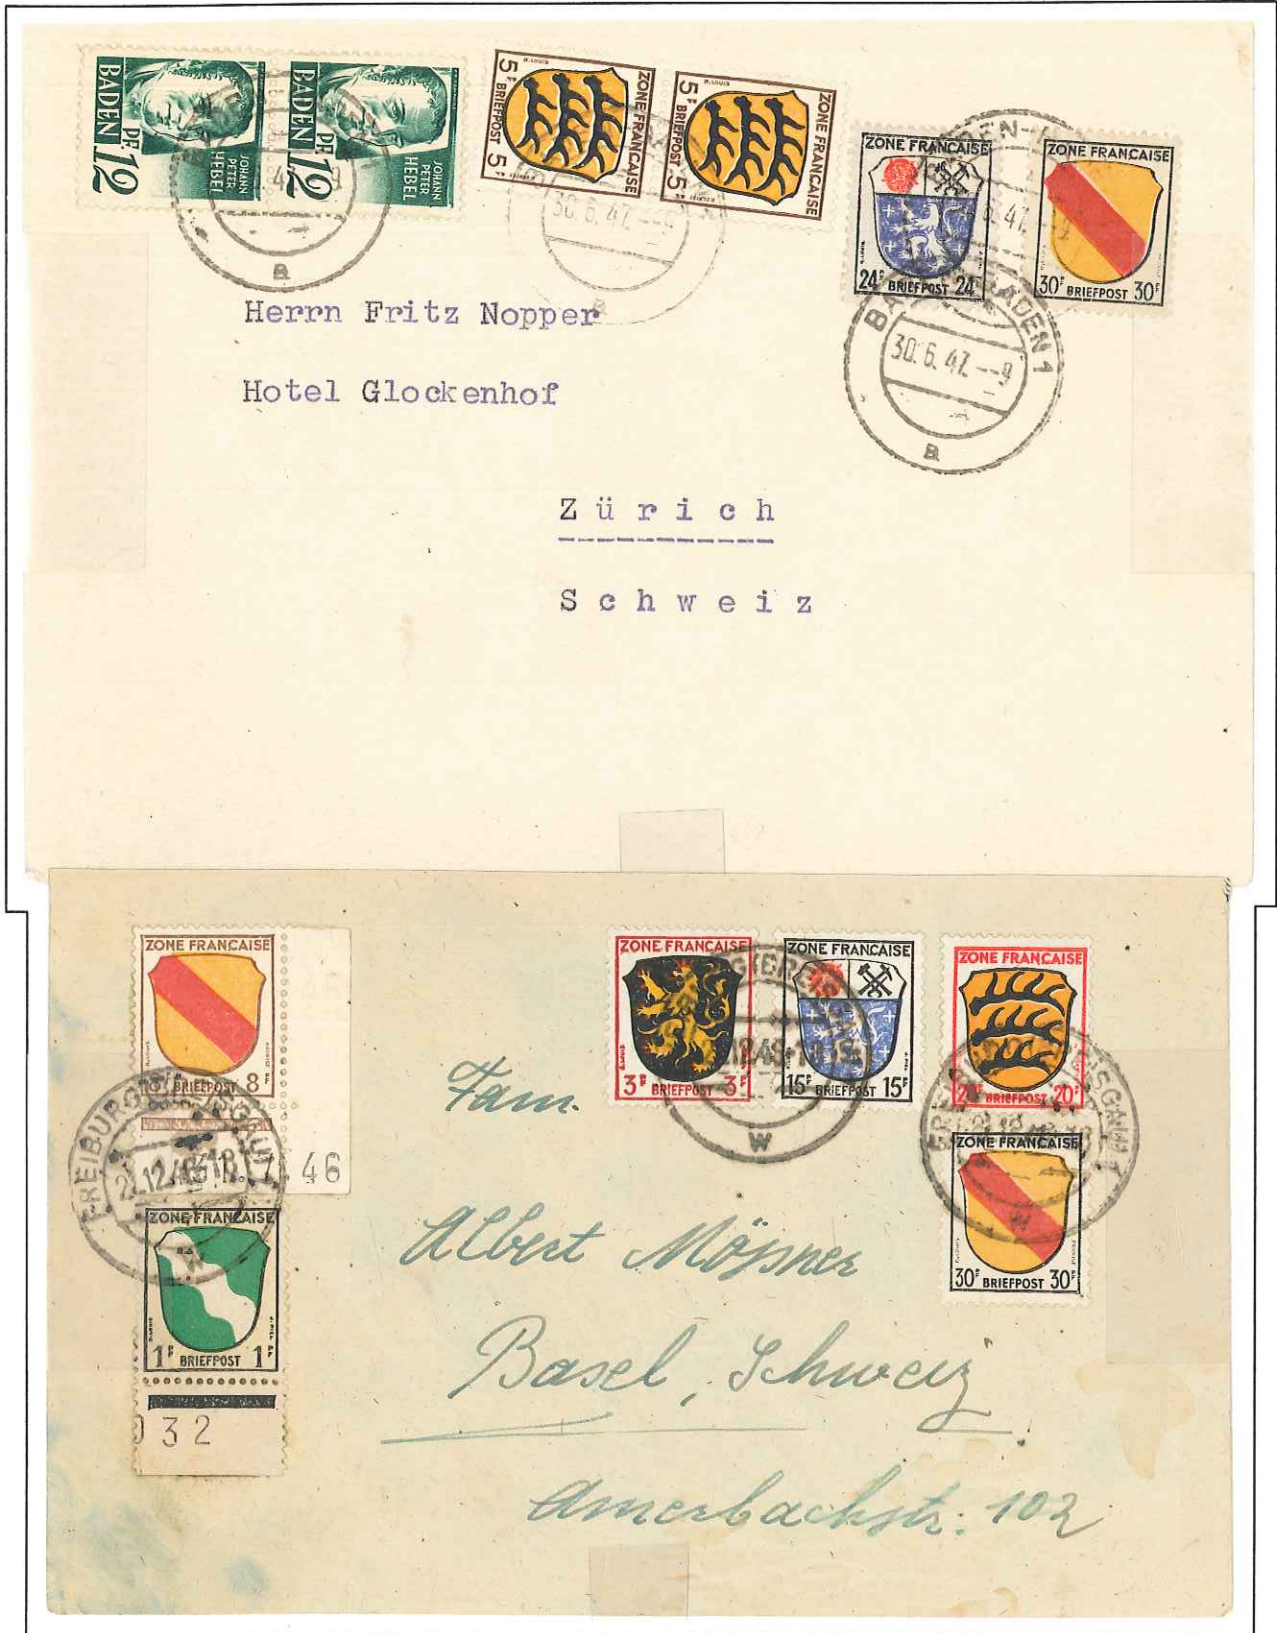 BADEN PF. 12
JOHANN
PETER
HEBEL
BADEN PF. 12
JOHANN
PETER
HEBEL
ZONE FRANÇAISE
5F BRIEFPOST 5F
ZONE FRANÇAISE
5F BRIEFPOST 5F
ZONE FRANÇAISE
24F BRIEFPOST 24F
ZONE FRANÇAISE
30F BRIEFPOST 30F
30.6.47.--9
a
a
BADEN-BADEN 1
30.6.47.--9
a
Herrn Fritz Nopper
Hotel Glockenhof
Zürich
Schweiz
ZONE FRANÇAISE
8F BRIEFPOST 8F
46
ZONE FRANÇAISE
1F BRIEFPOST 1F
32
FREIBURG
w
ZONE FRANÇAISE
3F BRIEFPOST 3F
ZONE FRANÇAISE
15F BRIEFPOST 15F
w
ZONE FRANÇAISE
20F BRIEFPOST 20F
ZONE FRANÇAISE
30F BRIEFPOST 30F
w
Fam.
Albert Mößner
Basel, Schweiz
Amerbachstr. 102